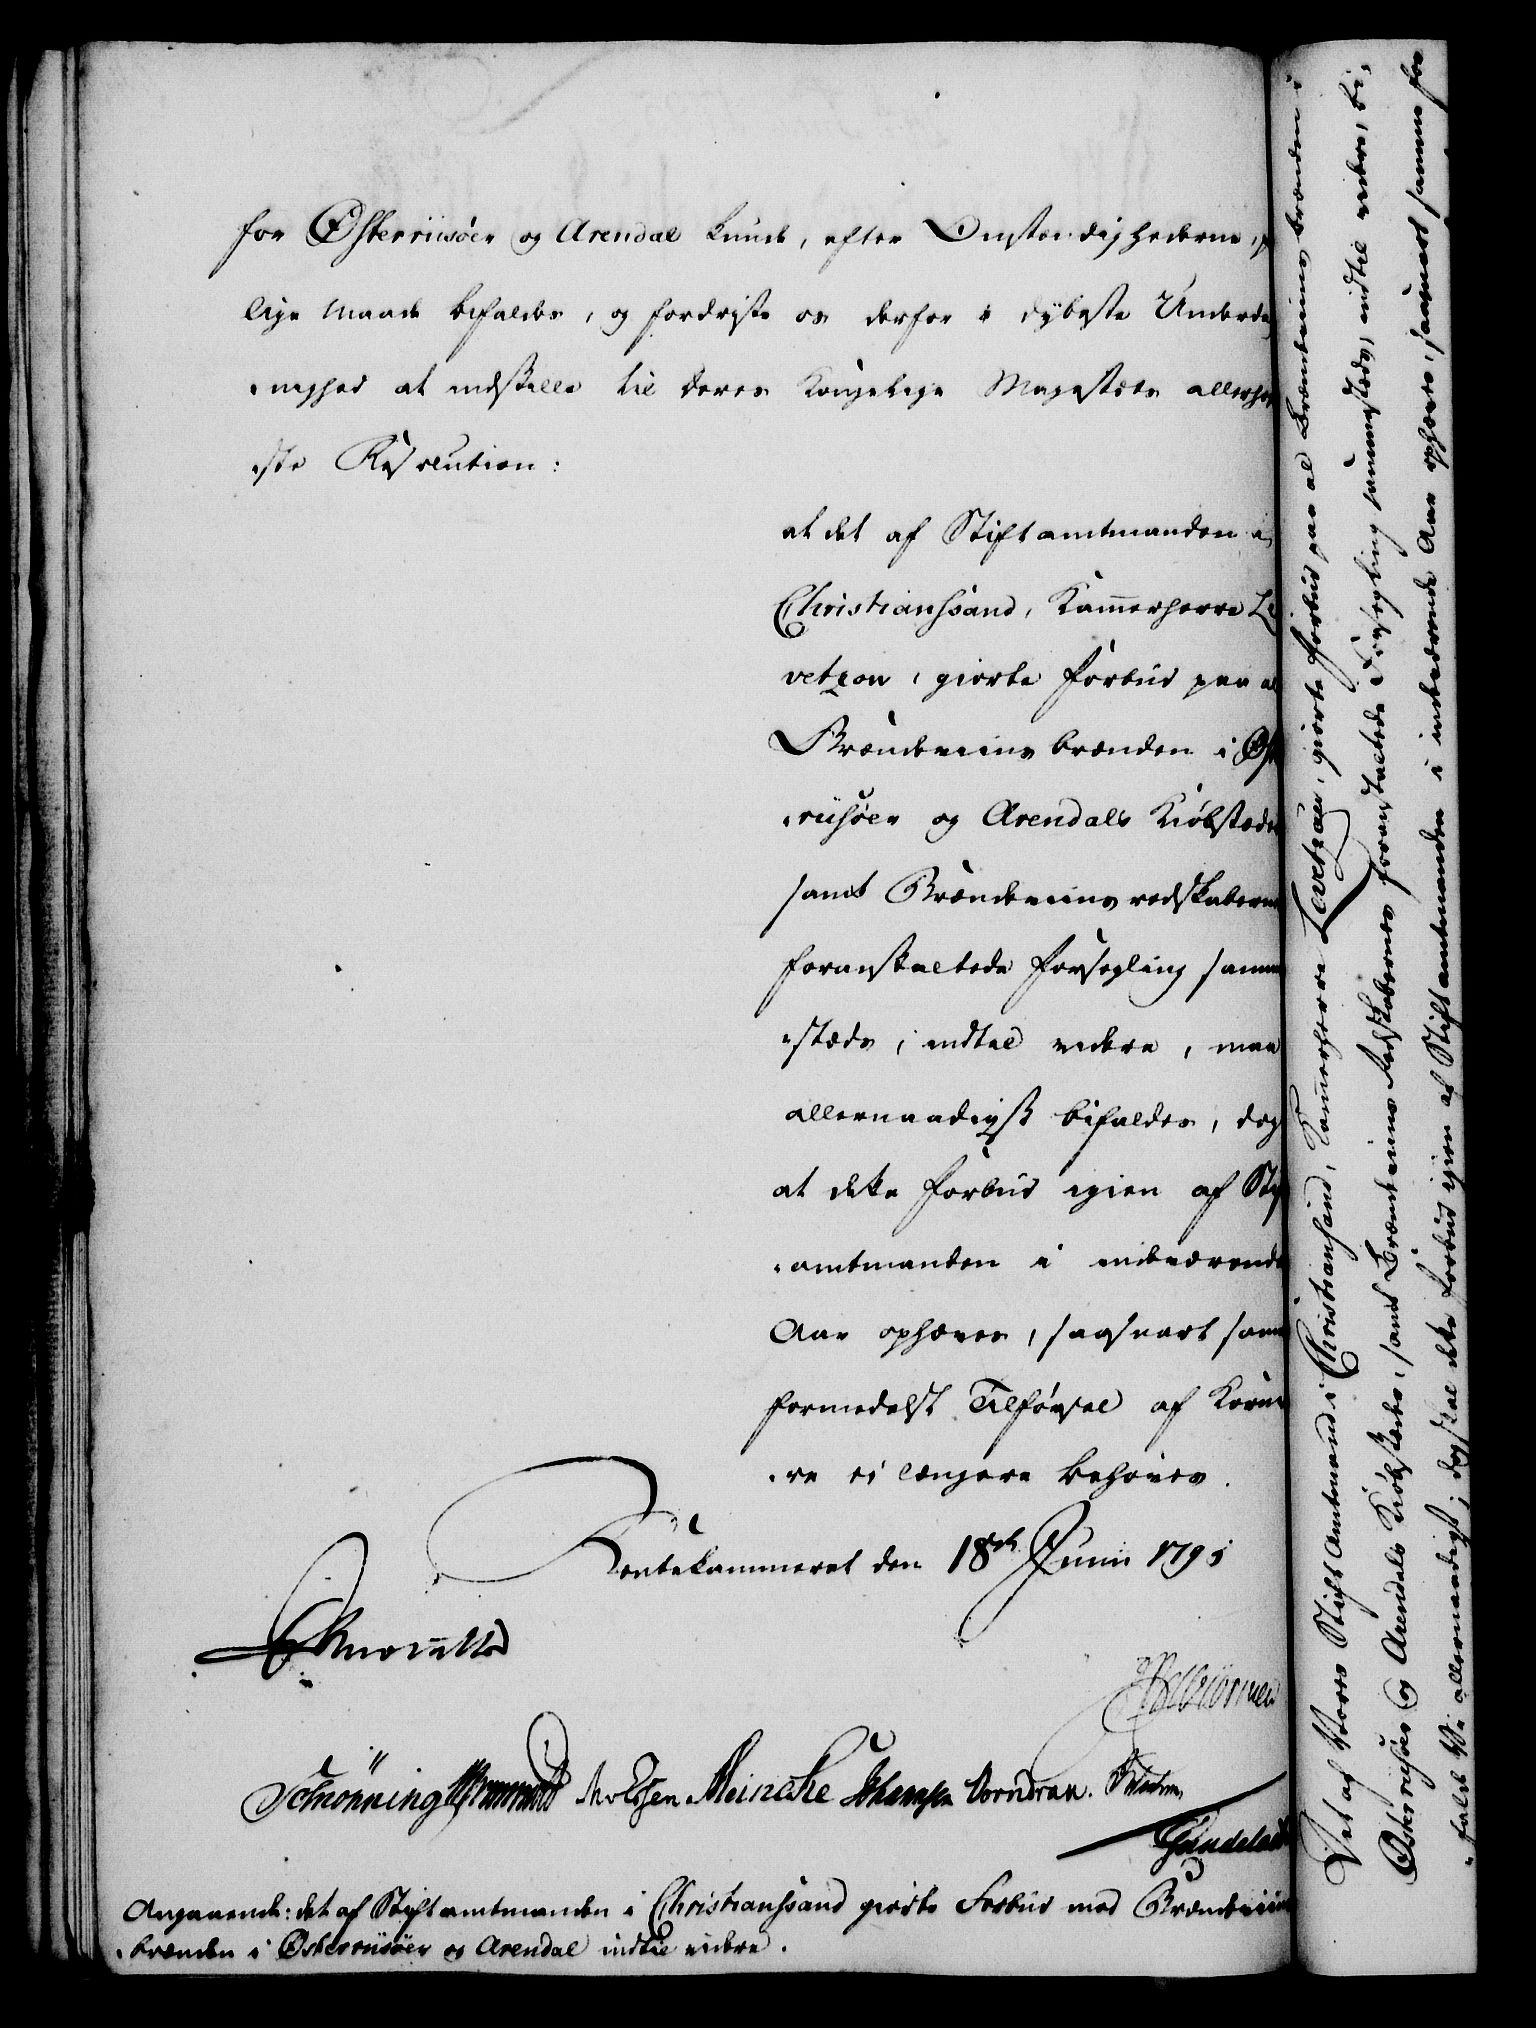 for Østerriisøer og Arendal kunde, efter Omstændighederne,
lige Maade bifaldes, og fordriste os derfor i dybeste Underda
-nighed at indstille til Deres Kongelige Majestæts allerhøi
-ste Resolution:
at det af Stiftamtmanden i
Christianssand, Kammerherre Le
vetzow, giorte Forbud paa al
Brændeviins brænden i Øster
-riisøer og Arendals Kiøbstæder
samt Brændeviins redskabernes
foranstaltede Forsegling samme
-stæds, indtil videre, maa
allernaadigst bifaldes, dog
at dette Forbud igien af Stift
-amtmanden i indeværende
Aar ophæves, saasnart samme
formedelst Tilførsel af Korn
-re ei længere behøves.
Rentekammeret den 18de Junii 1795
Schønning Meincke Vorndran.
Angaaende: det af Stiftamtmanden i Christianssand giorte Forbud mod Brændeviins
-brænden i Østerriisøer og Arendal indtil videre.
Det af Vores Stiftamtmand i Christiansand, Kammerherre Levetzau, giorte Forbud paa al Brændeviins brænden i
Østerriisøer og Arendals Kiøbstæder, samt Brændeviins Redskabernes foranstaltede Forsegling sammestæds, indtil videre, bi-
-falde Vi allernaadigst; dog skal dette Forbud igien af Stiftamtmanden i indeværende Aar ophæves, saasnart samme for